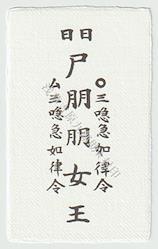 日日
尸朋朋女王
〇三急如律令
厶三急如律令